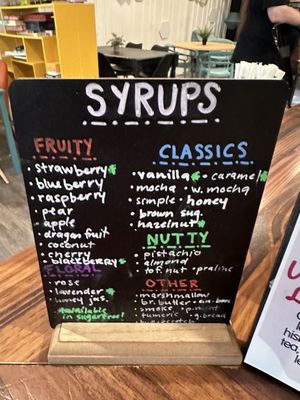 SYRUPS
FRUITY
strawberry
blueberry
raspberry
pear
apple
dragon fruit
coconut
cherry
blackberry
FLORAL
rose
lavender
honey jas.
available in sugarfree!
CLASSICS
vanilla • caramel
mocha • w. mocha
simple • honey
brown sug.
hazelnut
NUTTY
pistachio
almond
tof. nut • praline
OTHER
marshmallow
br. butter
smoke • p.mint
turmeric